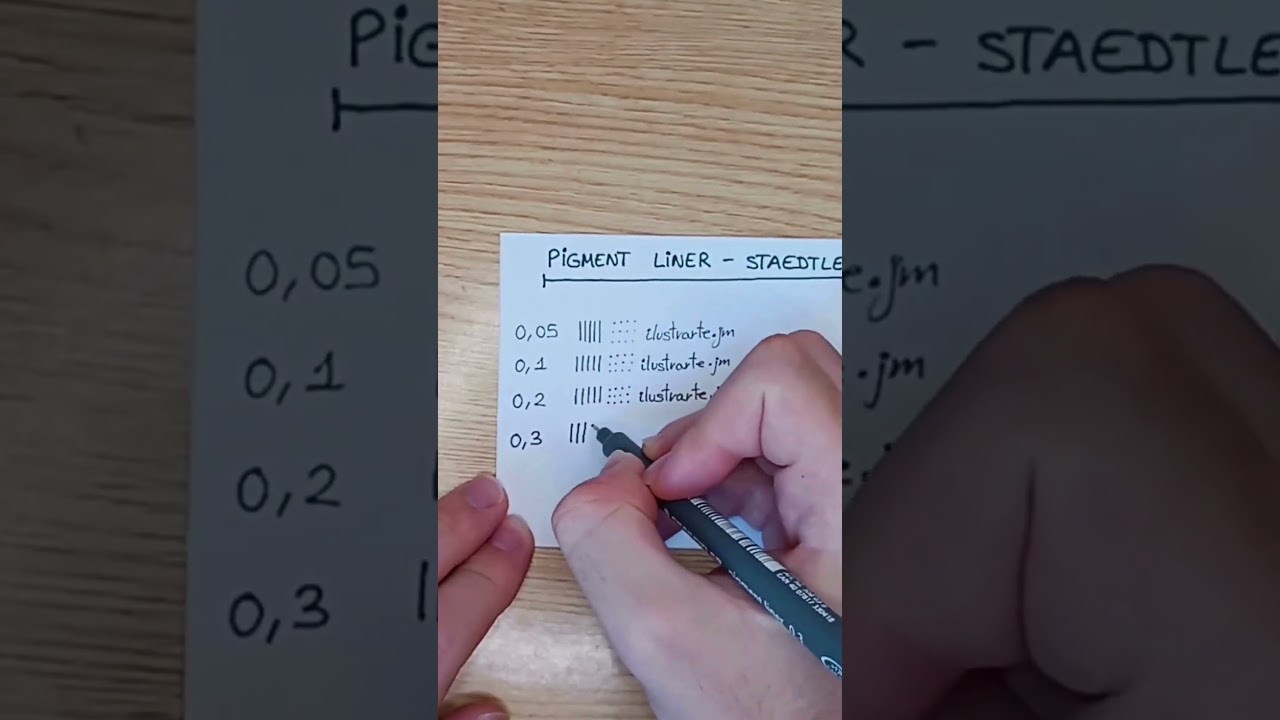 PiGMENT LiNER - STAEDTLE
0,05 ilustrarte.jm
0,1 ilustrarte.jm
0,2 ilustrarte.
0,3
pigment liner 0.3